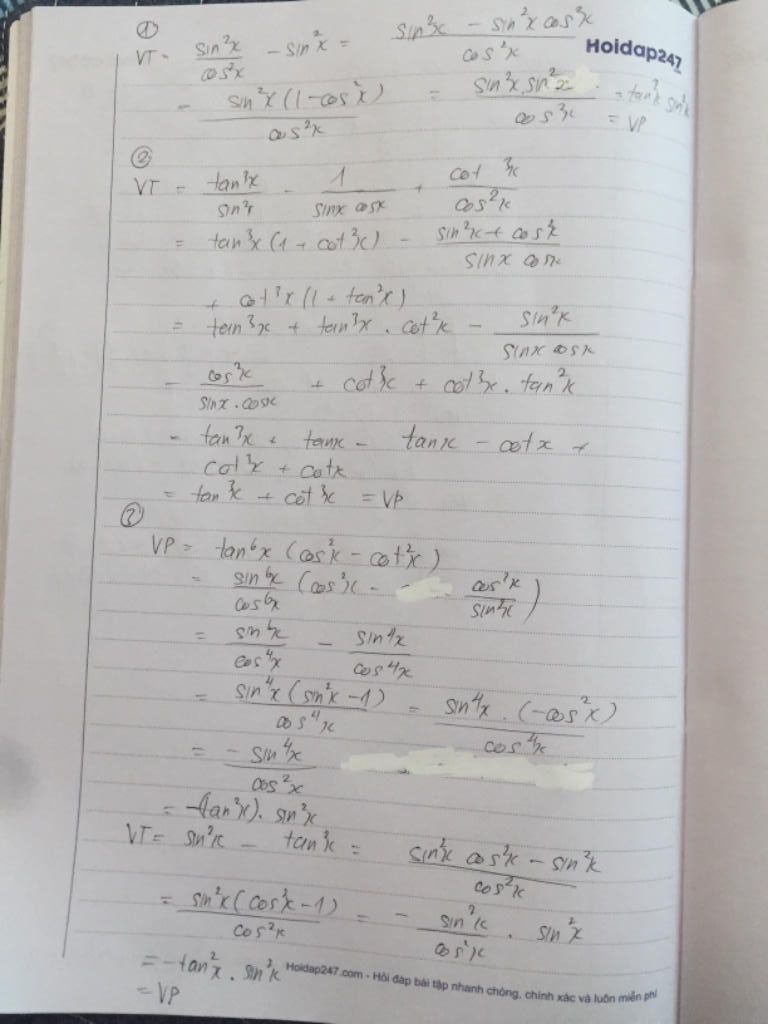 ①
VT = sin²x/cos²x - sin²x = (sin²x - sin²x cos²x)/cos²x
Hoidap247
= sin²x(1-cos²x)/cos²x = sin²x.sin²x/cos²x = tan²x sin²x
= VP
②
VT = tan³x/sin²x - 1/(sinx cosx) + cot³x/cos²x
= tan³x(1 + cot²x) - (sin²x + cos²x)/(sinx cosx)
+ cot³x(1 + tan²x)
= tan³x + tan³x . cot²x - sin²x/(sinx cosx)
- cos²x/(sinx.cosx) + cot³x + cot³x . tan²x
= tan³x + tanx - tanx - cotx +
cot³x + cotx
= tan³x + cot³x = VP
③
VP = tan⁶x (cos²x - cot²x)
= sin⁶x/cos⁶x (cos²x - cos²x/sin²x)
= sin⁶x/cos⁴x - sin⁴x/cos⁴x
= sin⁴x(sin²x - 1)/cos⁴x = sin⁴x . (-cos²x)/cos⁴x
= -sin⁴x/cos²x
= -(tan²x). sin²x
VT = sin²x - tan²x = (sin²x cos²x - sin²x)/cos²x
= sin²x(cos²x - 1)/cos²x = - sin²x/cos²x . sin²x
= -tan²x . sin²x
Hoidap247.com - Hỏi đáp bài tập nhanh chóng, chính xác và luôn miễn phí
= VP